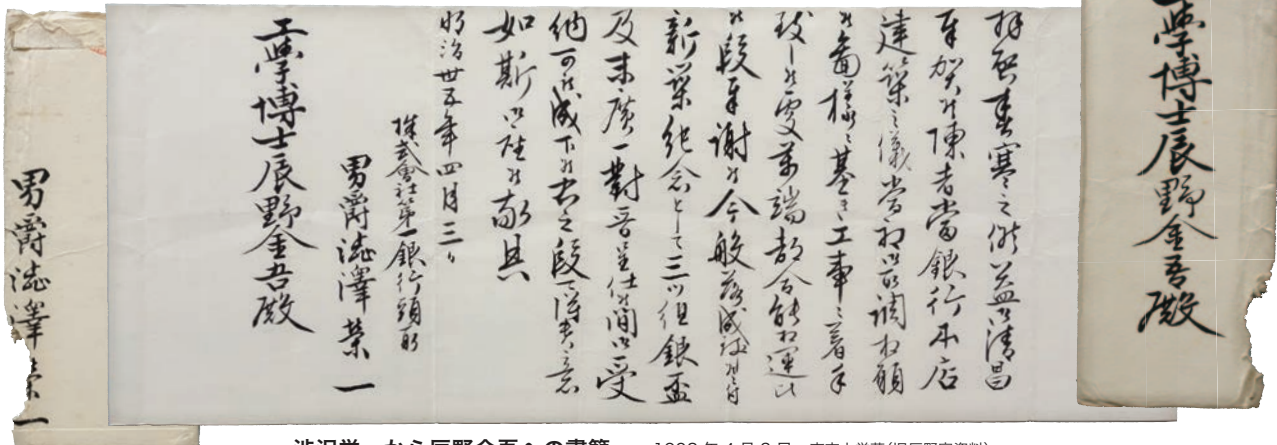 工學博士辰野金吾殿
拝啓春寒之候益御清昌
奉賀候陳者當銀行本店
建築之儀當初御取調相願
候圖様ニ基き工事ニ着手
致し候處萬端都合能相運ひ
候段奉謝候今般落成
新築紀念として三ツ組銀盃
及末廣一對晋呈仕候間御受
納可被成下候右之段得貴意
如斯御座候敬具
明治卅五年四月三日
株式會社第一銀行頭取
男爵澁澤榮一
工學博士辰野金吾殿
男爵澁澤榮一